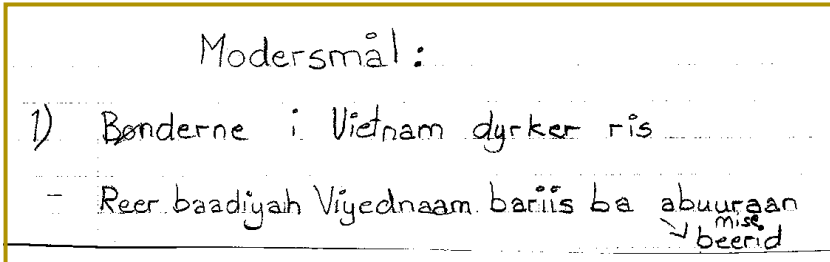 Modersmål:
1) Bønderne i Vietnam dyrker ris
- Reer baadiyah Viyednaam bariis ba abuuraan
mise
↘ beerid